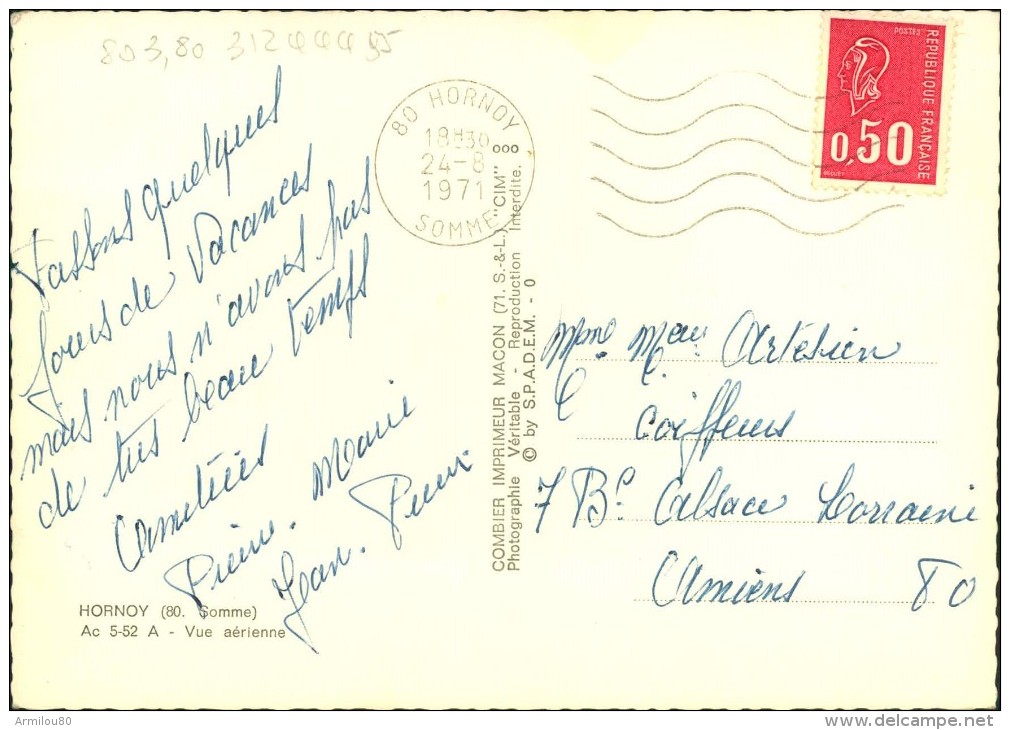 803,80 312444 55
80 HORNOY
18H30
24-8
1971
SOMME
POSTES
REPUBLIQUE FRANÇAISE
0,50
BEQUET
Passons quelques
jours de vacances
mais nous n'avons pas
de très beau temps
Amitiés
Pierre. Marie
Jean. Pierre
HORNOY (80. Somme)
Ac 5-52 A - Vue aérienne
COMBIER IMPRIMEUR MACON (71. S.-&-L.) "CIM"
Photographie Véritable - Reproduction Interdite.
© by S.P.A.D.E.M. - 0
Mme Artésien
Coiffeurs
7 Bd Alsace Lorraine
Amiens 80
Armilou80
delcampe.net